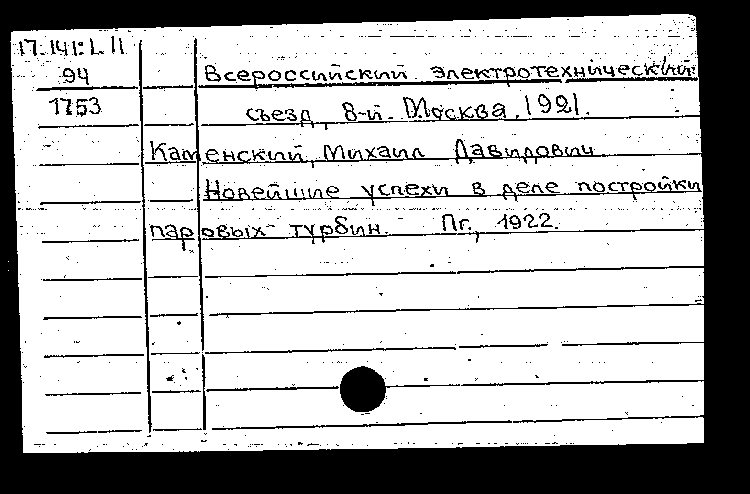 17.141:L.II
94
1753
Всероссийский электротехнический
съезд, 8-й. Москва. 1921.
Каменский, Михаил Давидович
Новейшие успехи в деле постройки
паровых турбин. Пг., 1922.